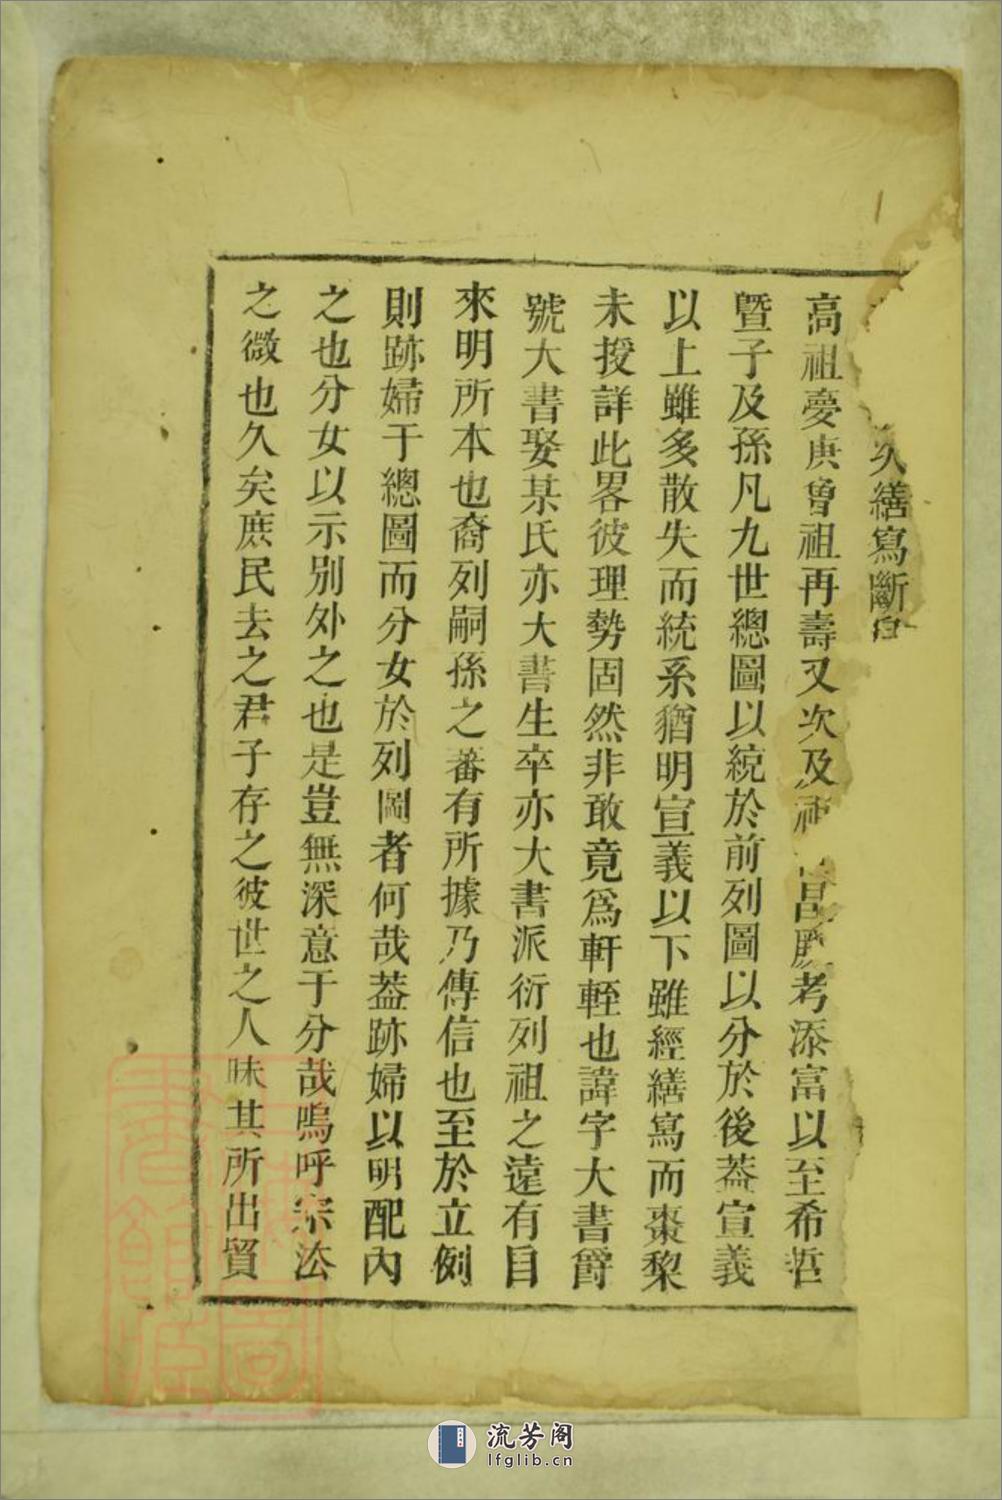 繕寫斷
高祖慶庚曾祖再壽又次及祖昌勝考添富以至希哲
暨子及孫凡九世總圖以統於前列圖以分於後葢宣義
以上雖多散失而統系猶明宣義以下雖經繕寫而棗黎
未授詳此畧彼理勢固然非敢竟爲軒輊也諱字大書爵
號大書娶某氏亦大書生卒亦大書派衍列祖之遠有目
來明所本也裔列嗣孫之蕃有所據乃傳信也至於立例
則跡婦于總圖而分女於列圖者何哉葢跡婦以明配內
之也分女以示別外之也是豈無深意于分哉嗚呼宗法
之微也久矣庶民去之君子存之彼世之人昧其所出貿
流芳阁
lfglib.cn